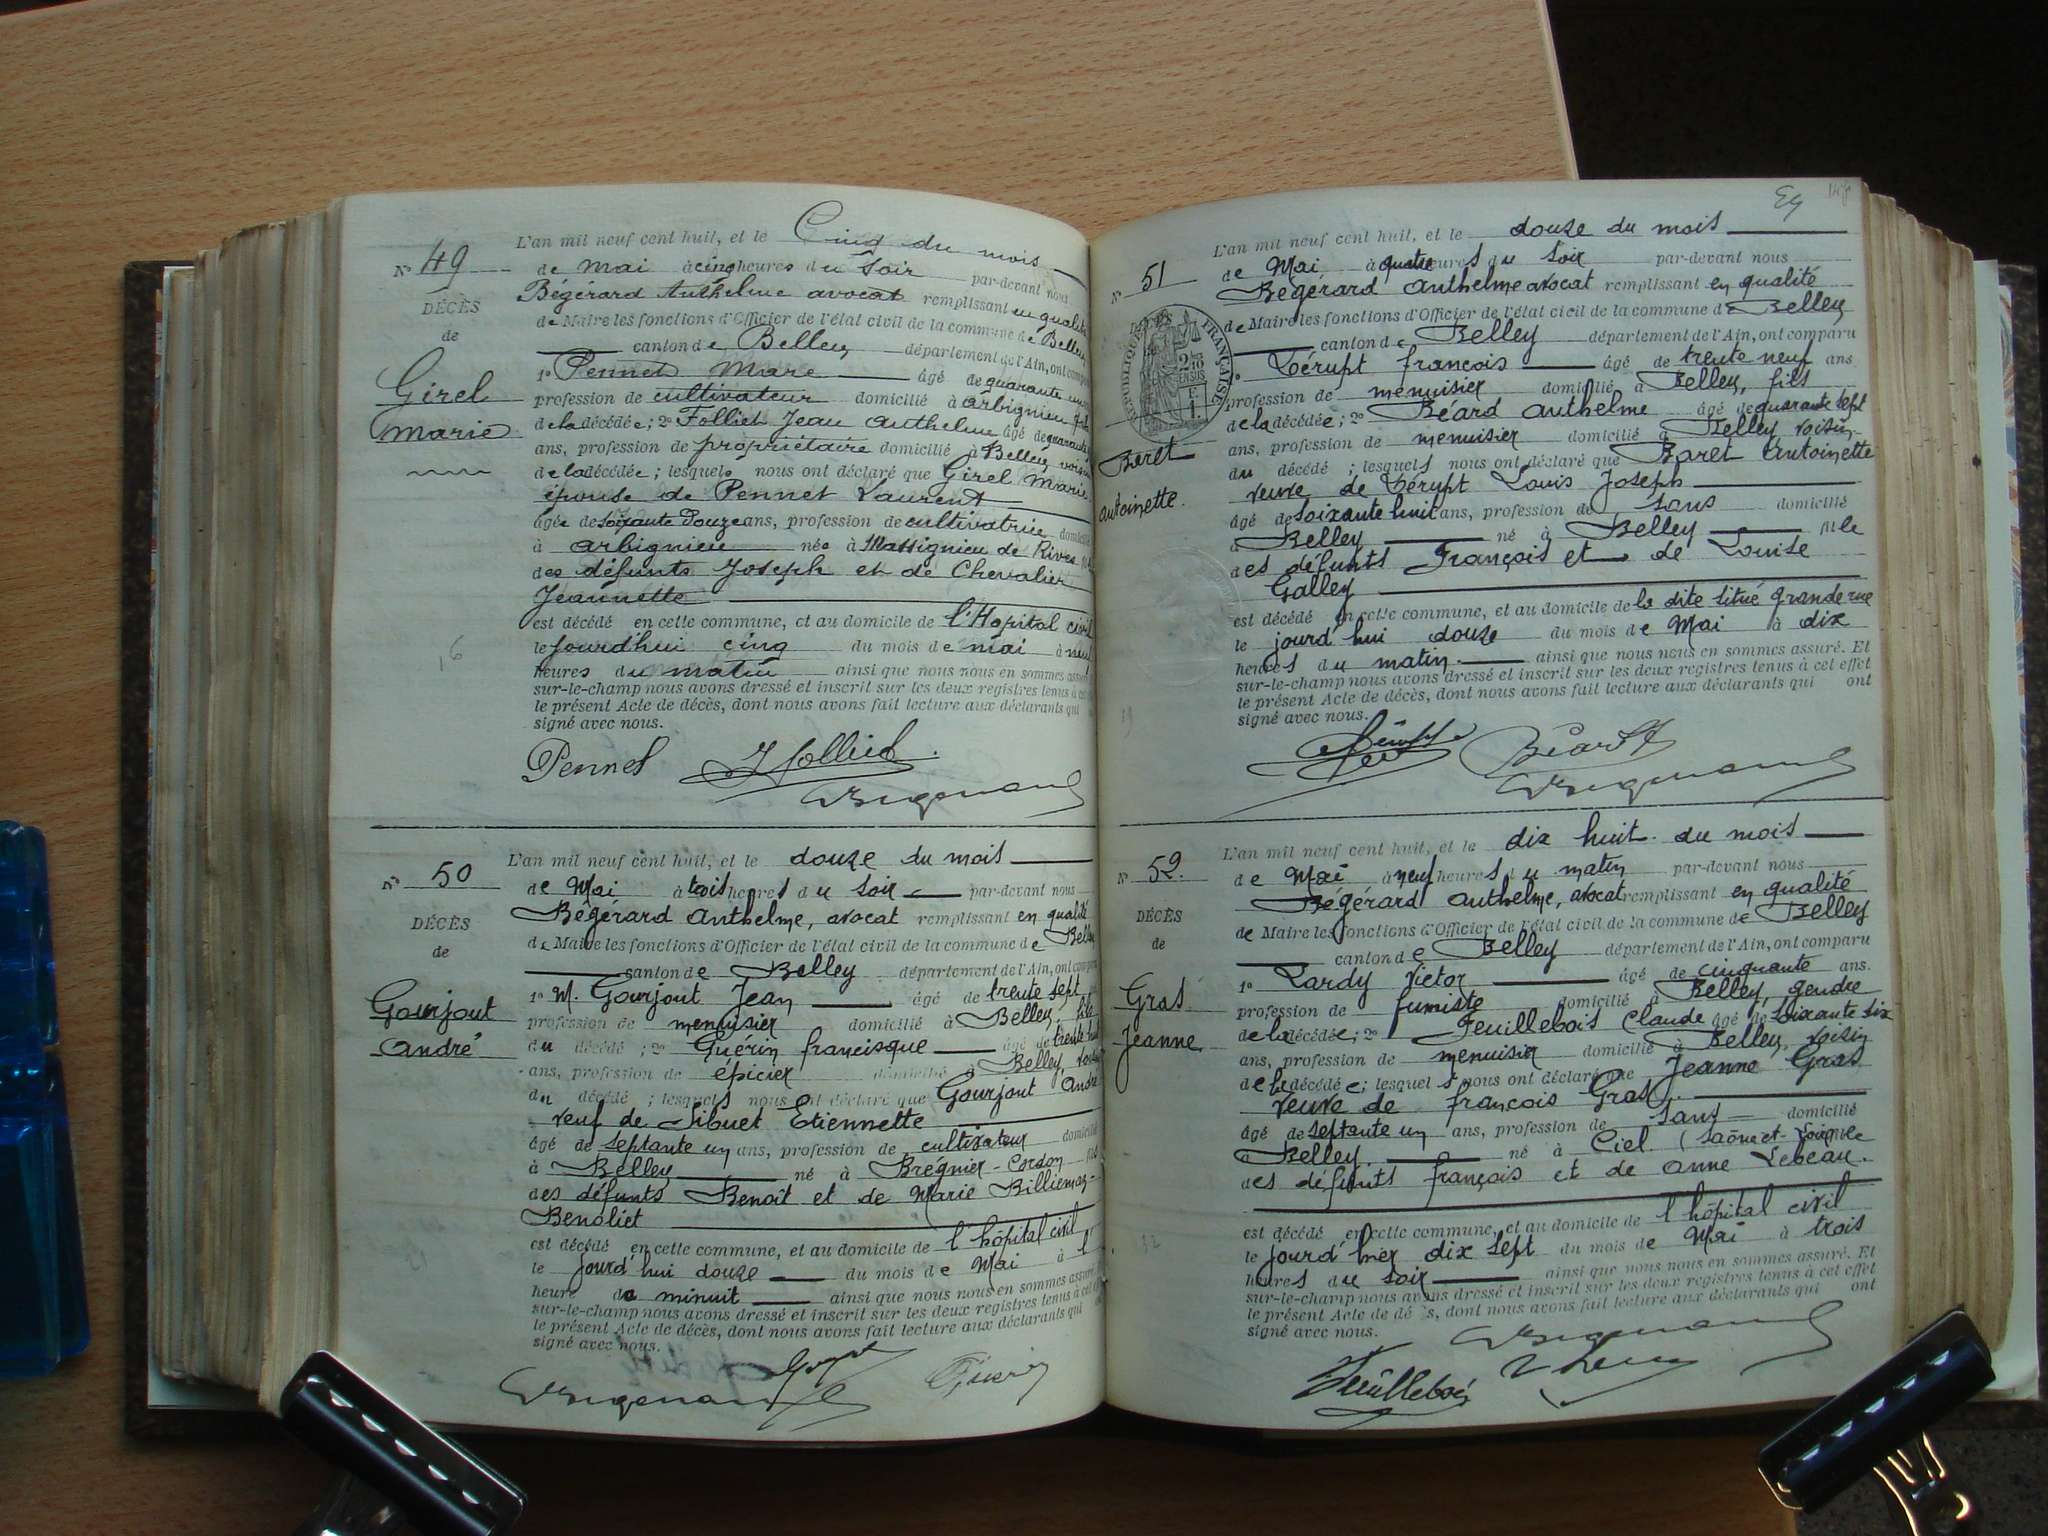 N° 49
DÉCÈS
de
Girel
Marie
L'an mil neuf cent huit, et le Cinq du mois
de mai à cinq heures du soir par-devant nous
Bégérard Anthelme avocat remplissant en qualité
de Maire les fonctions d'Officier de l'état civil de la commune de Belley
canton de Belley département de l'Ain, ont comparu
1° Pennet Marc âgé de quarante
profession de cultivateur domicilié à Arbignieu fils
de la décédée; 2° Folliet Jean Anthelme âgé de quarante
ans, profession de propriétaire domicilié à Belley voisin
de la décédée; lesquels nous ont déclaré que Girel Marie
épouse de Pennet Laurent
âgée de soixante douze ans, profession de cultivatrice domicilié
à Arbignieu née à Massignieu de Rives
des défunts Joseph et de Chevalier
Jeannette
est décédé en cette commune, et au domicile de l'Hopital civil
le jourd'hui cinq du mois de mai à neuf
heures du matin ainsi que nous nous en sommes assuré
sur-le-champ nous avons dressé et inscrit sur les deux registres tenus à cet
le présent Acte de décès, dont nous avons fait lecture aux déclarants qui
signé avec nous.
Pennet J Folliet
N° 50
DÉCÈS
de
Gourjout
André
L'an mil neuf cent huit, et le douze du mois
de Mai à trois heures du soir par-devant nous
Bégérard Anthelme, avocat remplissant en qualité
de Maire les fonctions d'Officier de l'état civil de la commune de Belley
canton de Belley département de l'Ain, ont comparu
1° M. Gourjout Jean âgé de trente sept
profession de menuisier domicilié à Belley, fils
du décédé; 2° Guérin francisque âgé de trente huit
ans, profession de épicier domicilié à Belley, voisin
du décédé; lesquels nous ont déclaré que Gourjout André
veuf de Sibuet Etiennette
âgé de septante un ans, profession de cultivateur domicilié
à Belley né à Brégnier-Cordon fils
des défunts Benoît et de Marie Billiemaz-
Benoliet
est décédé en cette commune, et au domicile de l'hôpital civil
le jourd'hui douze du mois de Mai à 1
heure de minuit ainsi que nous nous en sommes assuré
sur-le-champ nous avons dressé et inscrit sur les deux registres tenus à cet
le présent Acte de décès, dont nous avons fait lecture aux déclarants qui
signé avec nous.
Guérin
N° 51
RÉPUBLIQUE FRANÇAISE
Baret
Antoinette.
L'an mil neuf cent huit, et le douze du mois
de Mai à quatre heures du soir par-devant nous
Bégérard Anthelme avocat remplissant en qualité
de Maire les fonctions d'Officier de l'état civil de la commune de Belley
canton de Belley département de l'Ain, ont comparu
1° Lérupt françois âgé de trente neuf ans
profession de menuisier domicilié à Belley, fils
de la décédée; 2° Béard Anthelme âgé de quarante sept
ans, profession de menuisier domicilié à Belley voisin
du décédé; lesquels nous ont déclaré que Baret Antoinette
veuve de Lérupt Louis Joseph
âgé de soixante huit ans, profession de sans domicilié
à Belley né à Belley fille
des défunts François et de Louise
Galley
est décédé en cette commune, et au domicile de la dite situé grande rue
le jourd'hui douze du mois de Mai à dix
heures du matin ainsi que nous nous en sommes assuré. Et
sur-le-champ nous avons dressé et inscrit sur les deux registres tenus à cet effet
le présent Acte de décès, dont nous avons fait lecture aux déclarants qui ont
signé avec nous.
Béard A
N° 52.
DÉCÈS
de
Gras
Jeanne
L'an mil neuf cent huit, et le dix huit du mois
de Mai à neuf heures du matin par-devant nous
Bégérard Anthelme, avocat remplissant en qualité
de Maire les fonctions d'Officier de l'état civil de la commune de Belley
canton de Belley département de l'Ain, ont comparu
1° Lardy Victor âgé de cinquante ans.
profession de fumiste domicilié à Belley, gendre
de la décédée; 2° Feuillebois Claude âgé de soixante six
ans, profession de menuisier domicilié à Belley, voisin
de la décédée; lesquels nous ont déclaré que Jeanne Gras
veuve de françois Gras
âgé de septante un ans, profession de sans domicilié
à Belley né à Ciel (Saône et Loire) fille
des défunts françois et de Anne Lebeau.
est décédé en cette commune, et au domicile de l'hôpital civil
le jourd'hier dix sept du mois de Mai à trois
heures du soir ainsi que nous nous en sommes assuré. Et
sur-le-champ nous avons dressé et inscrit sur les deux registres tenus à cet effet
le présent Acte de décès, dont nous avons fait lecture aux déclarants qui ont
signé avec nous.
Feuillebois